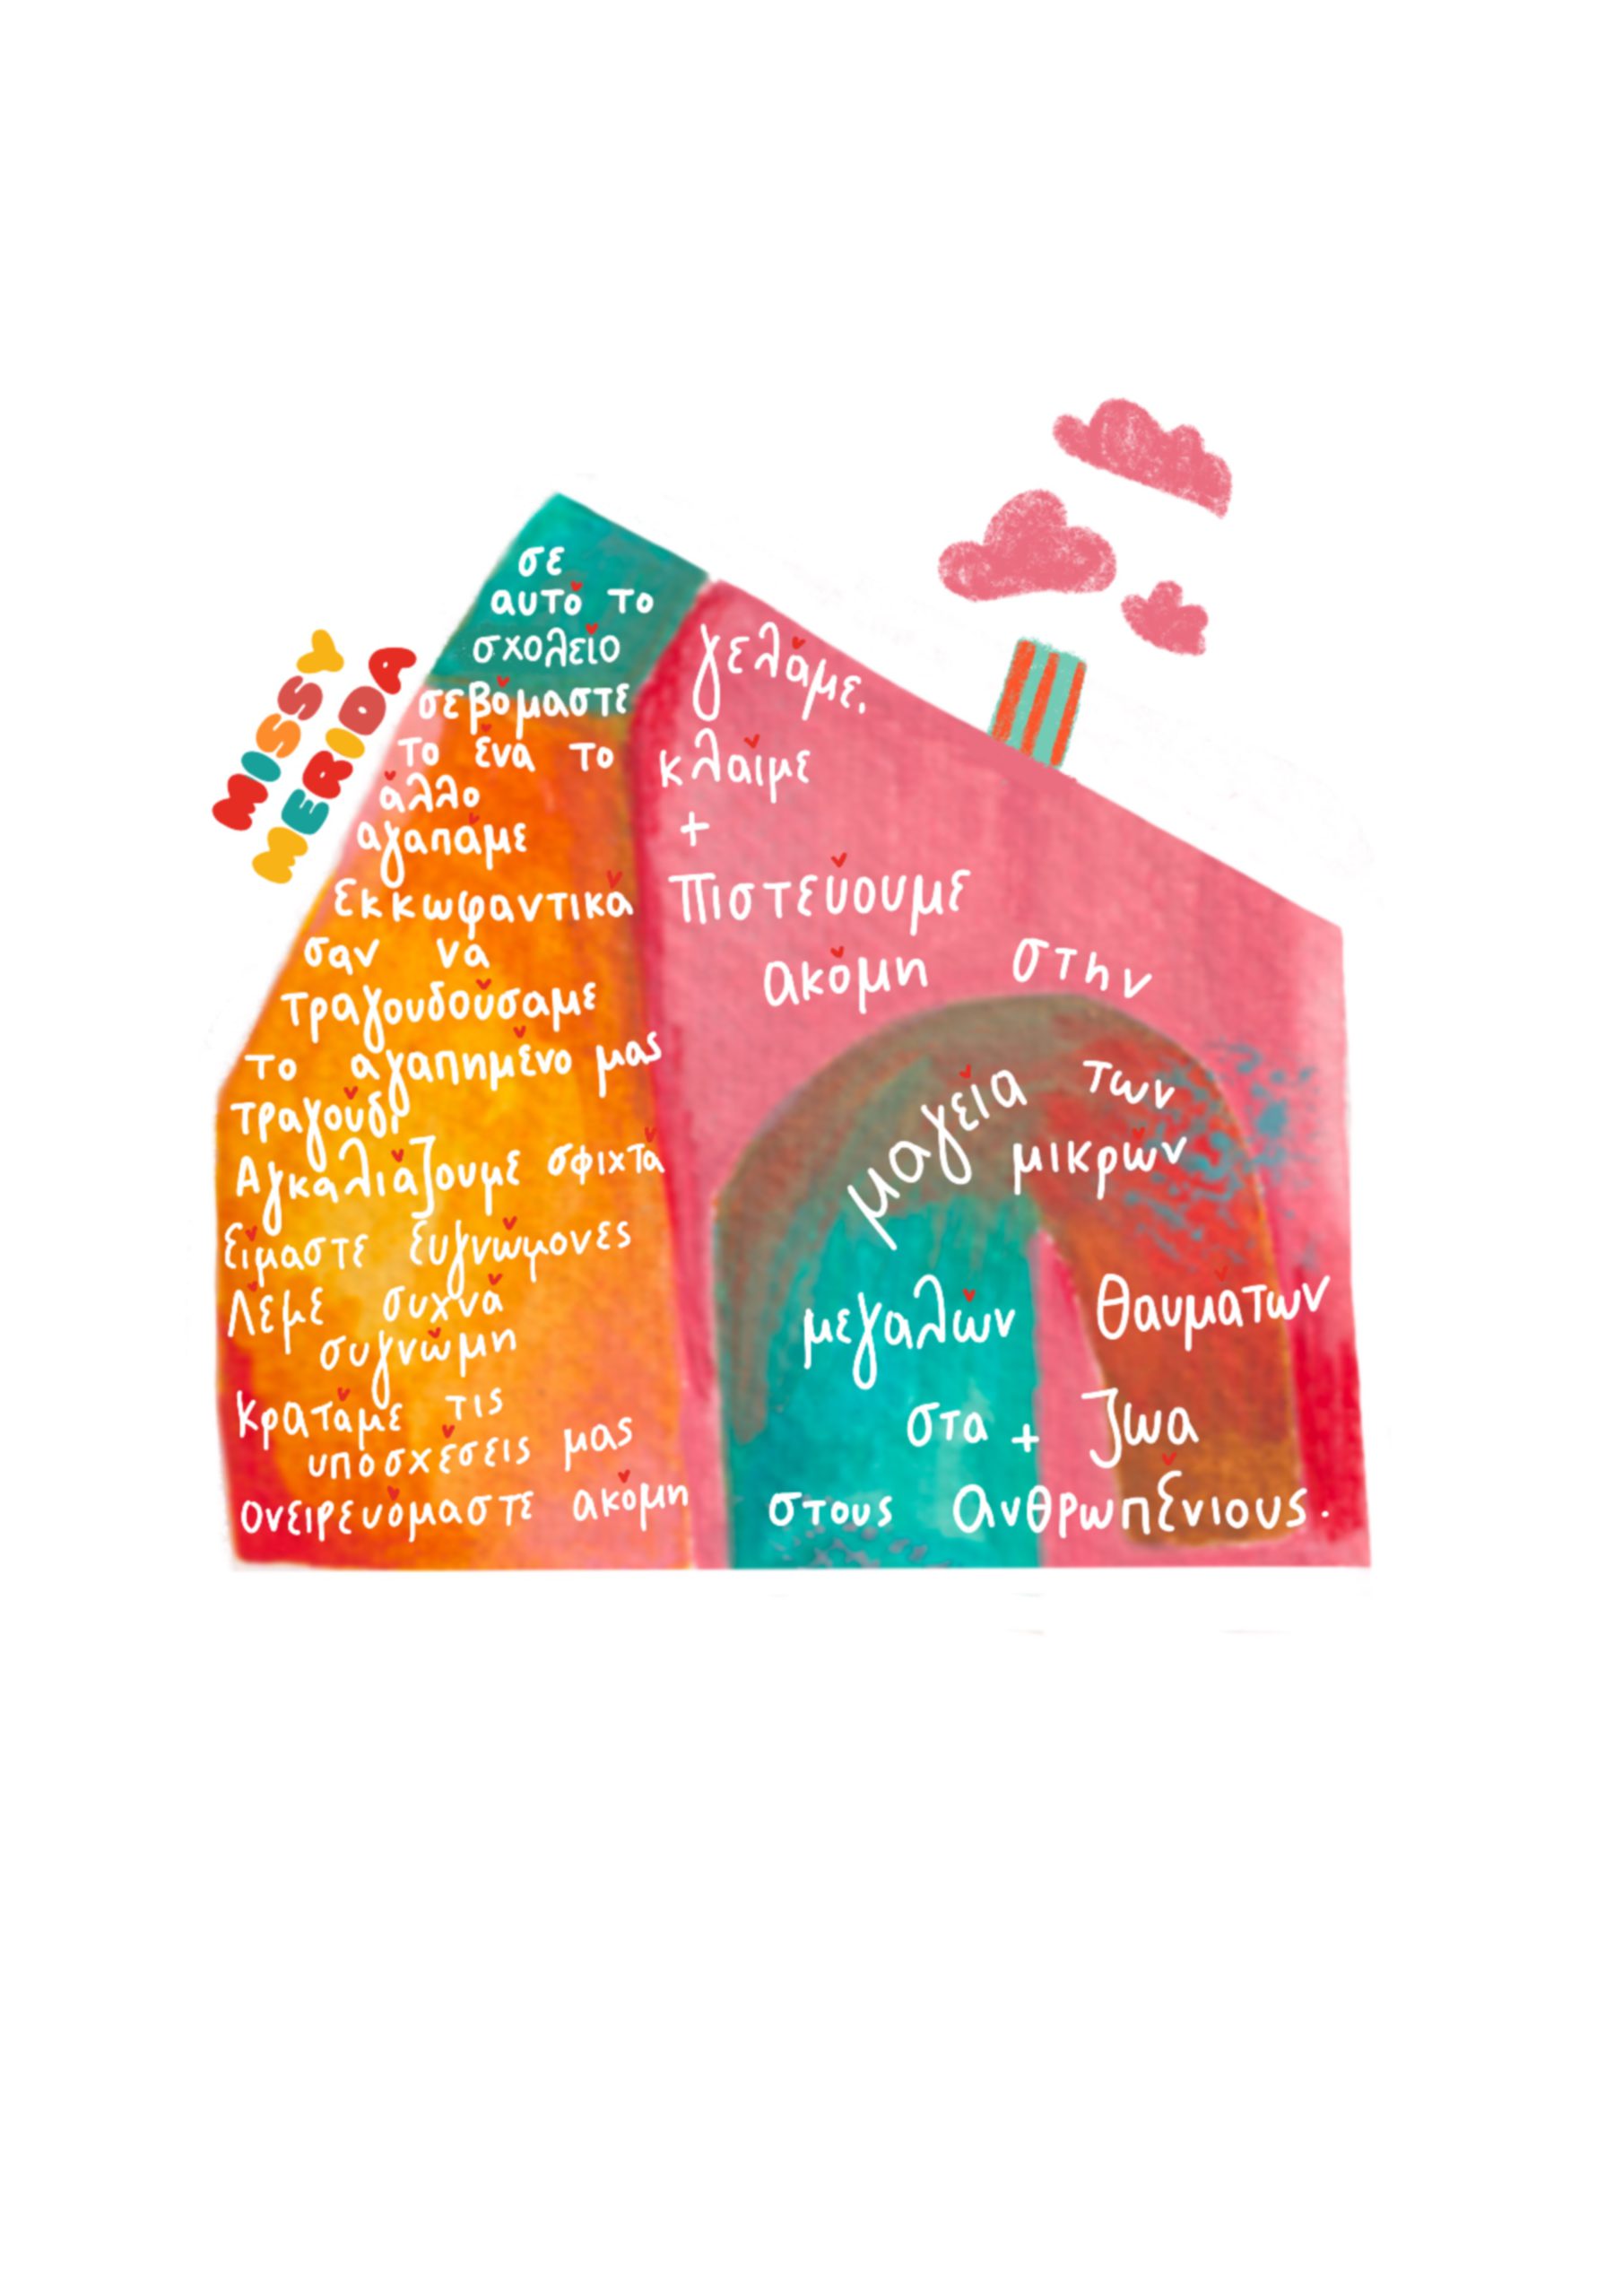 MISSY
MERIDA
σε
αυτό το
σχολείο
σεβόμαστε
το ένα το
άλλο
αγαπάμε
εκκωφαντικά
σαν να
τραγουδούσαμε
το αγαπημένο μας
τραγούδι
Αγκαλιάζουμε σφιχτά
Είμαστε ευγνώμονες
Λέμε συχνά
συγνώμη
κρατάμε τις
υποσχέσεις μας
ονειρευόμαστε ακόμη
γελάμε,
κλαίμε
+
Πιστεύουμε
ακόμη στην
μαγεία των
μικρών
μεγαλών θαυμάτων
στα + ζωα
στους ανθρωπένιους.